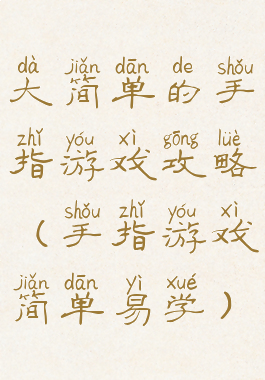 dà jiǎn dān de shǒu
大简单的手
zhǐ yóu xì gōng lüè
指游戏攻略
shǒu zhǐ yóu xì
（手指游戏
jiǎn dān yì xué
简单易学）